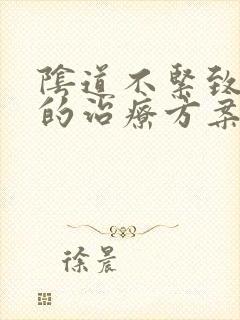 陰道不緊致
的治療方案
徐晨